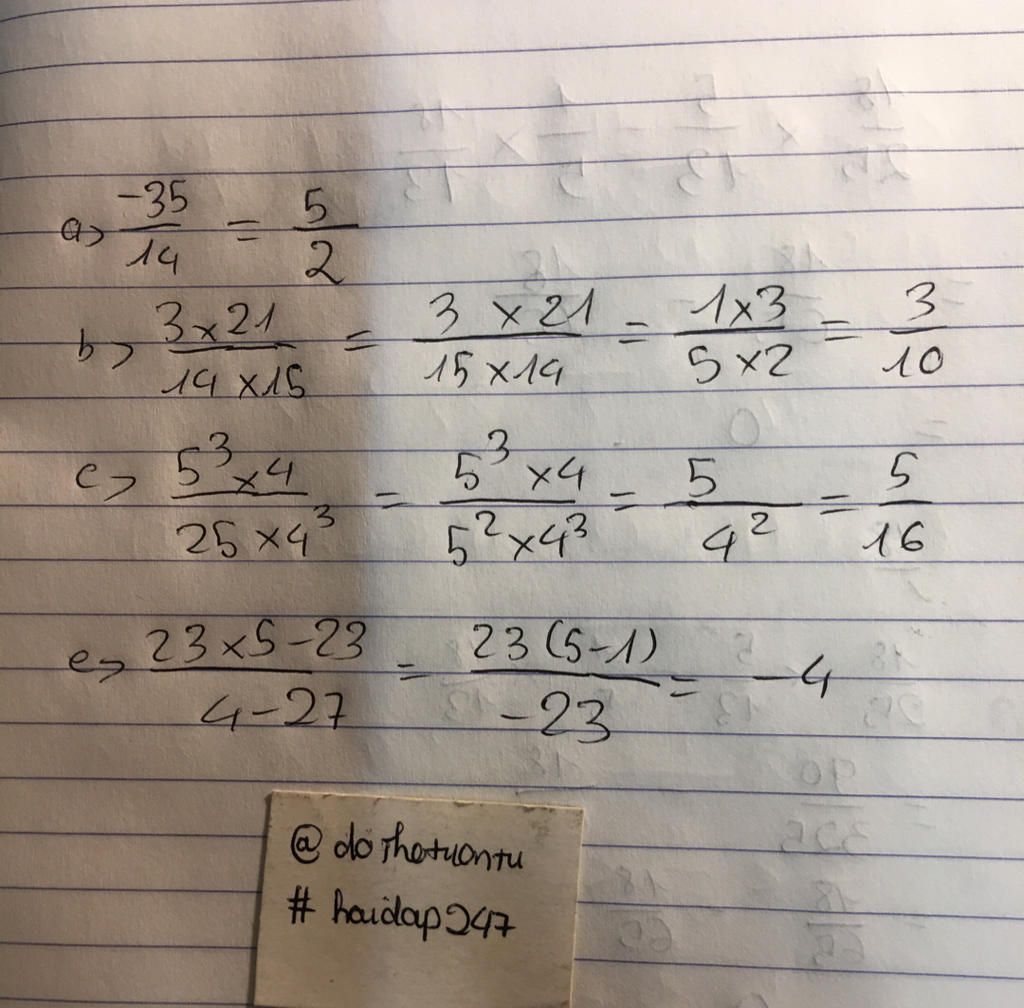 a> -35/14 = 5/2
b> 3 x 21/14 x 15 = 3 x 21/15 x 14 = 1 x 3/5 x 2 = 3/10
c> 5³ x 4/25 x 4³ = 5³ x 4/5² x 4³ = 5/4² = 5/16
e> 23 x 5 - 23/4 - 27 = 23 (5 - 1)/-23 = -4
@dothotuontu
# haidap247